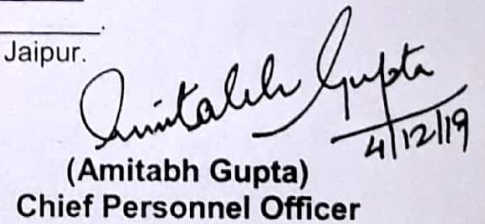 Jaipur.
Amitabh Gupta
4/12/19
(Amitabh Gupta)
Chief Personnel Officer